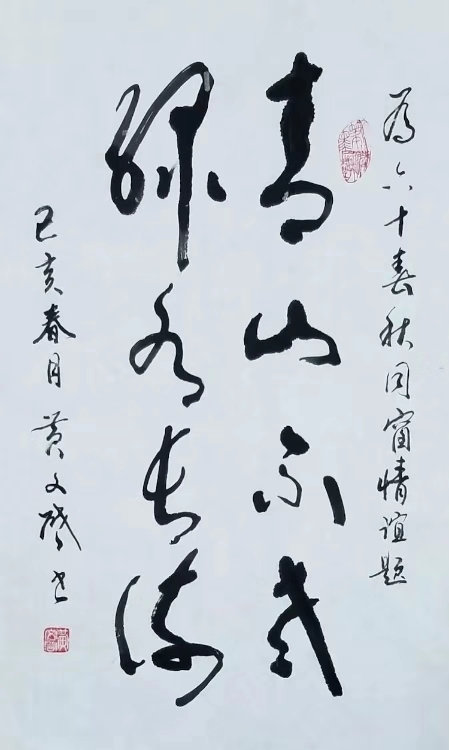 为六十春秋同窗情谊题
青山不老
绿水长流
己亥春月 黄文隆书